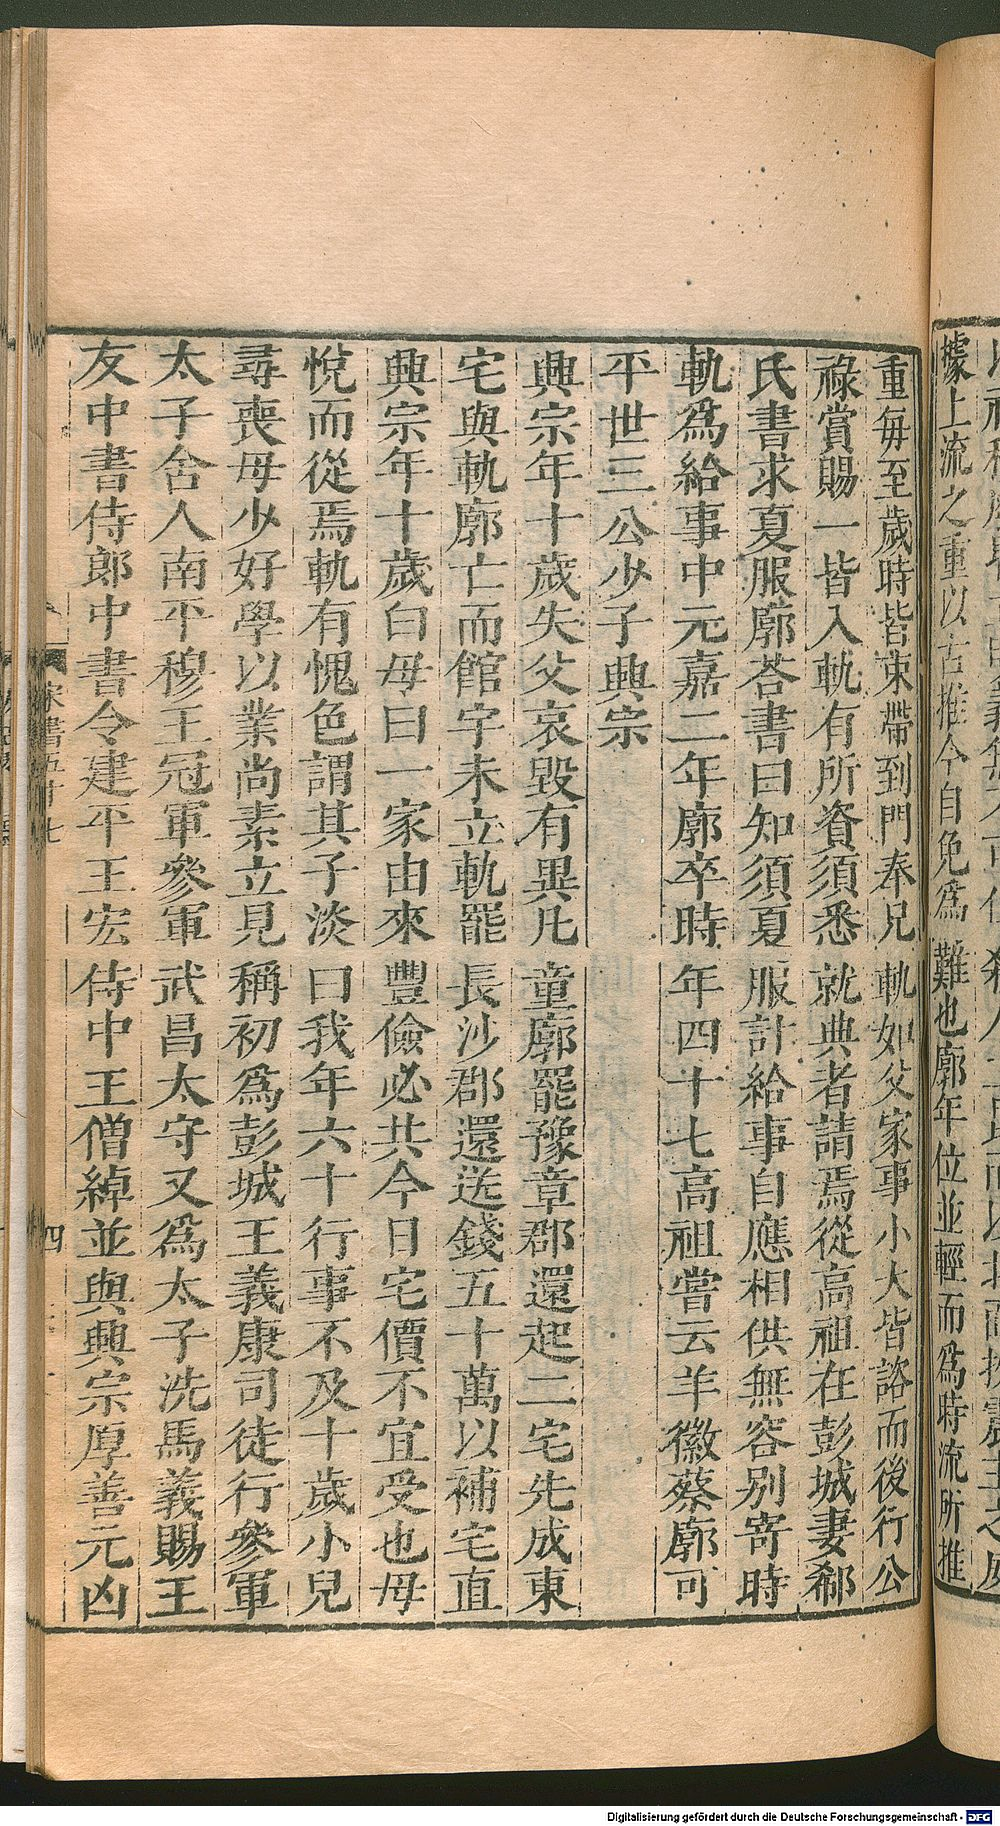 據上流之重以古推今自免爲難也廓年位並輕而爲時流所推
重每至歲時皆束帶到門奉兄軌如父家事小大皆諮而後行公
祿賞賜一皆入軌有所資須悉就典者請焉從高祖在彭城妻郗
氏書求夏服廓荅書曰知須夏服計給事自應相供無容别寄時
軌爲給事中元嘉二年廓卒時年四十七高祖嘗云羊徽蔡廓可
平世三公少子興宗
興宗年十歲失父哀毀有異凡童廓罷豫章郡還起二宅先成東
宅與軌廓亡而館宇未立軌罷長沙郡還送錢五十萬以補宅直
興宗年十歲白母曰一家由來豐儉必共今日宅價不宜受也母
悅而從焉軌有愧色謂其子淡曰我年六十行事不及十歲小兒
尋喪母少好學以業尚素立見稱初爲彭城王義康司徒行參軍
太子舍人南平穆王冠軍參軍武昌太守又爲太子洗馬義賜王
友中書侍郎中書令建平王宏侍中王僧綽並與興宗厚善元凶
宋書五十七
四
Digitalisierung gefördert durch die Deutsche Forschungsgemeinschaft - DFG